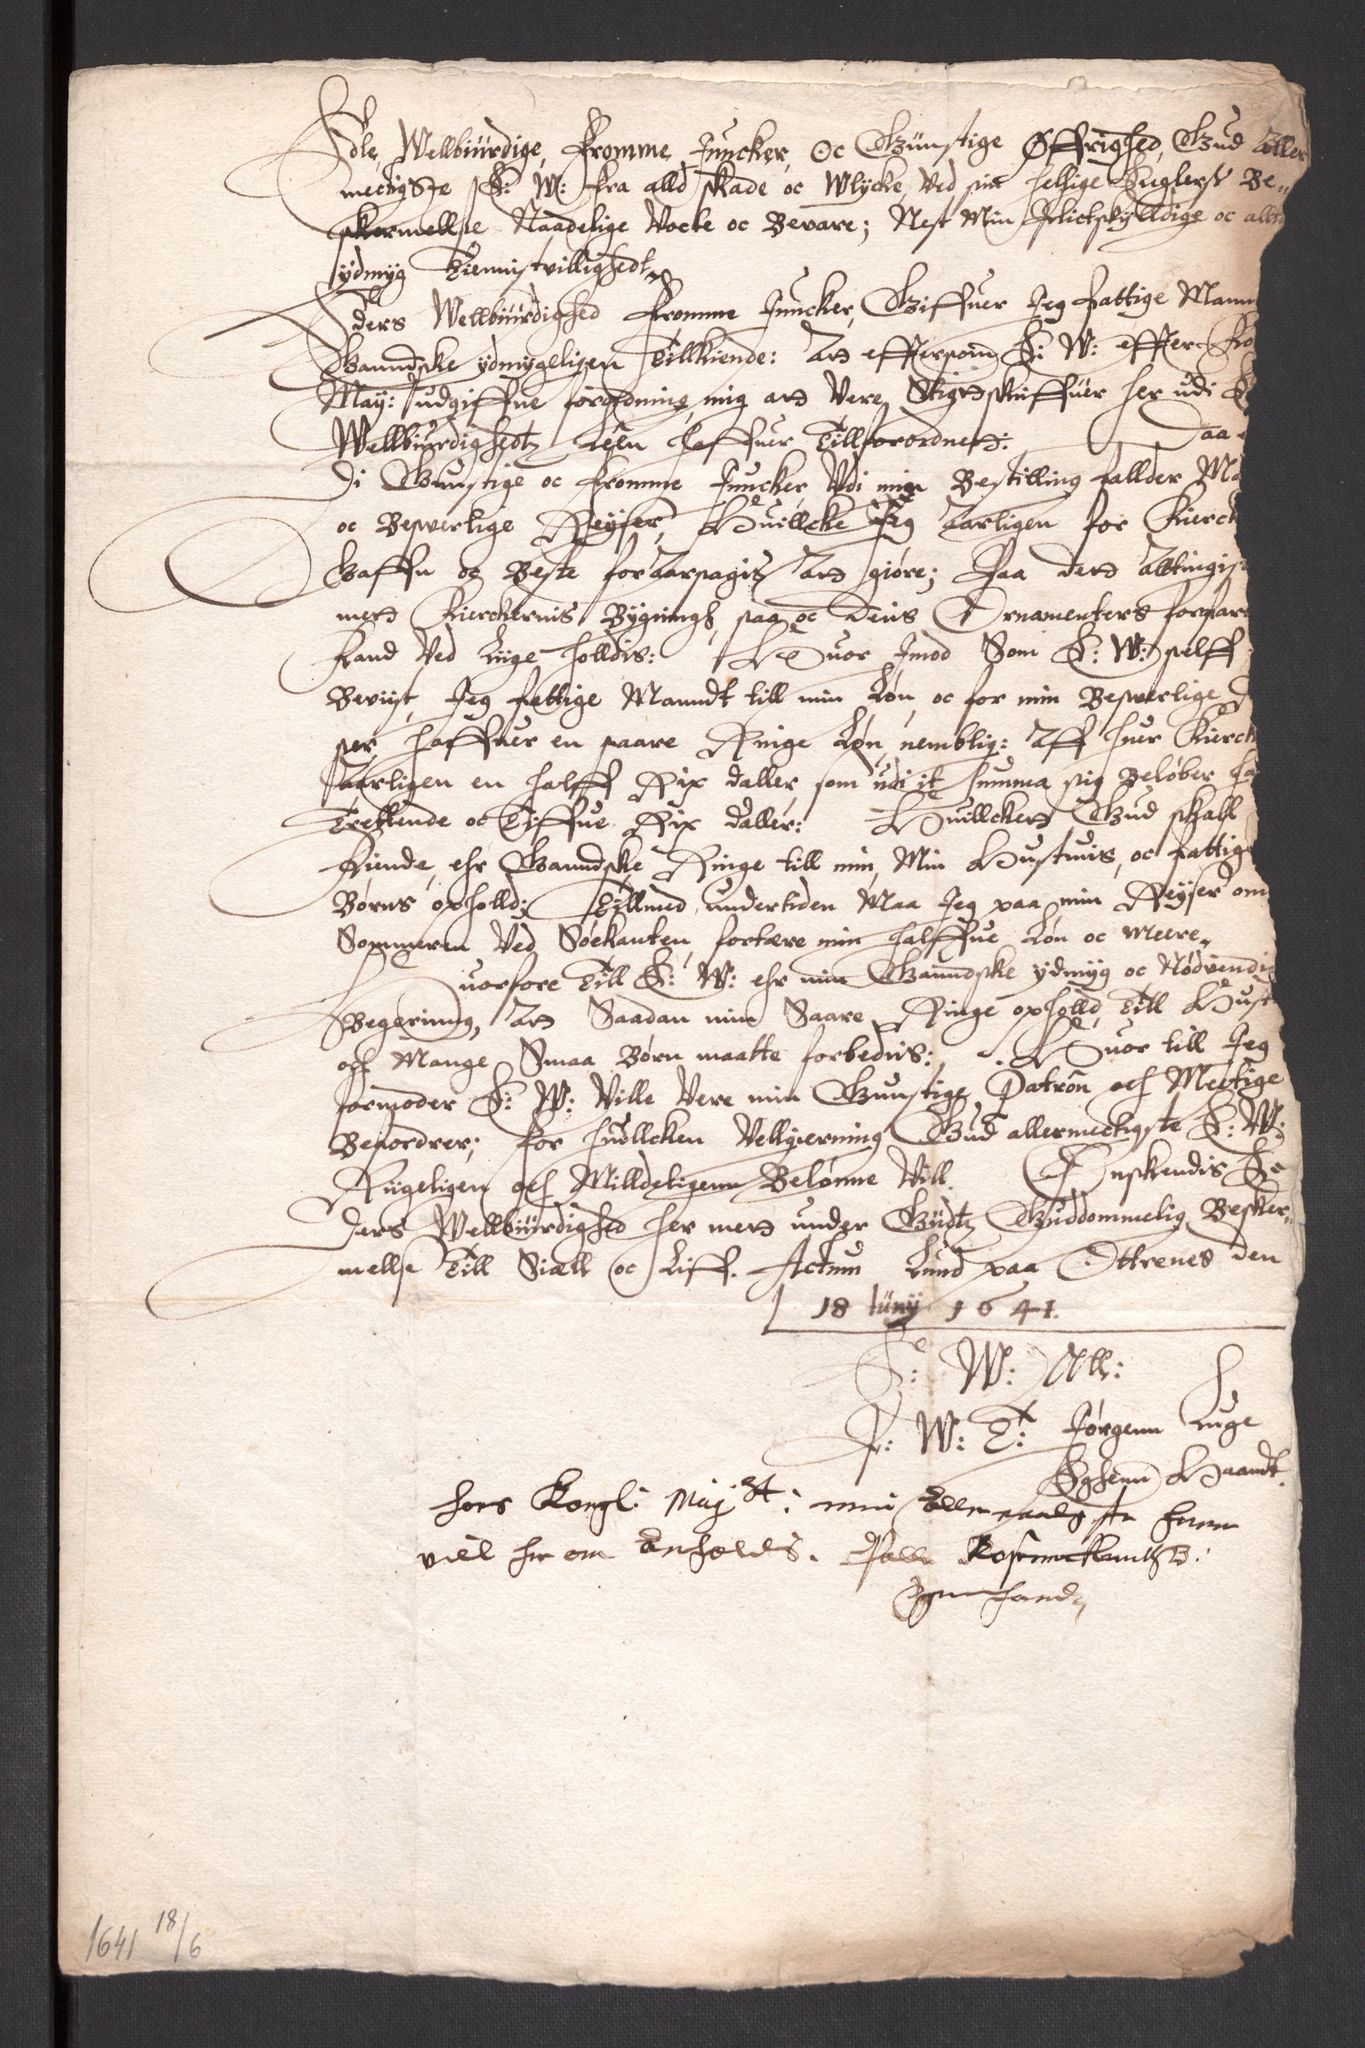 Edle, Wellbiurdige, Fromme Juncker, Oc Gúnstige Øffrighed, Gud Aller
mectigste E: W: fra alld skade oc Wlycke, Ved sin hellige Englers Be„
skermellse Naadelige Vocte oc Bevare; Nest Min Plictskylldige oc alltt
ydmyg Tienistvillighedt
Eders Wellbiurdighed Fromme Juncker, Giffuer Jeg fattige Mannd
Ganndske ydmygeligen Tillkiende: Att effttersom E: W: effter Ko
May: udgiffne forordning, mig att Vere Stigtsskriffuer her udi E
Wellbiurdighedtz Leen haffuer Tillforordnett: Daa
Di Gunstige oc fromme Juncker, Vdi min Bestilling fallder Ma
oc Besverlige Reyser, Huillcke Jeg Aarligen for Kierck
Gaffn oc Beste foraarsagis att giøre; Paa dett Alltingist
mett Kierckernis Bygningh, saa oc Deris Ornamenters forfare
kand Ved Liige holldis: Huor Jmod Som E: W: selff
Bevist, Jeg fattige Manndt till min Løn, oc for min Besverlige
ser, haffuer en saare Ringe Løn, nemblig: Aff huer Kierck
Aarligen en halff Rix daller, som udi it Summa sig Beløber
Trettende oc Tiffue Rix daller: Huillckett Gud skall
kiende, ehr Ganndske Ringe till min, Min Hustruis, oc fattige
Børns opholld; Tillmed undertiden Maa Jeg paa min Reyser om
Sommeren Ved Søekanten, fortære min halffue Løn oc meere„
Huorfore Till E: W: ehr min Ganndske ydmyg oc Nødvendig
Begering, Att Saadan min Saare Ringe opholld, Till Hustru
och Mange Smaa Børn maatte forbedris: Huor till Jeg
formoder E: W: Ville Vere min Gunstige Patrón och Mectige
Befordrer; for huillcken Vellgierning Gud allermectigste E: W:
Riigeligen och Milldeligenn Belønne Vill. Ønskendis E
ders Wellbiurdighed her mett under Gudtz Guddommelig Besker„
mellse Till Siæll oc Liff. Actum Lund paa Ottrenes den
18 Iunij 1641.
E: W: Allt:
P: W: T: Jørgenn Luge
Eghenn Haandt
Hoes Kongl: Maj^st: min allernaadigste herre
viell her om anholdes. Palle Rosenkrantz B:
Egen hand„
1641 18/6